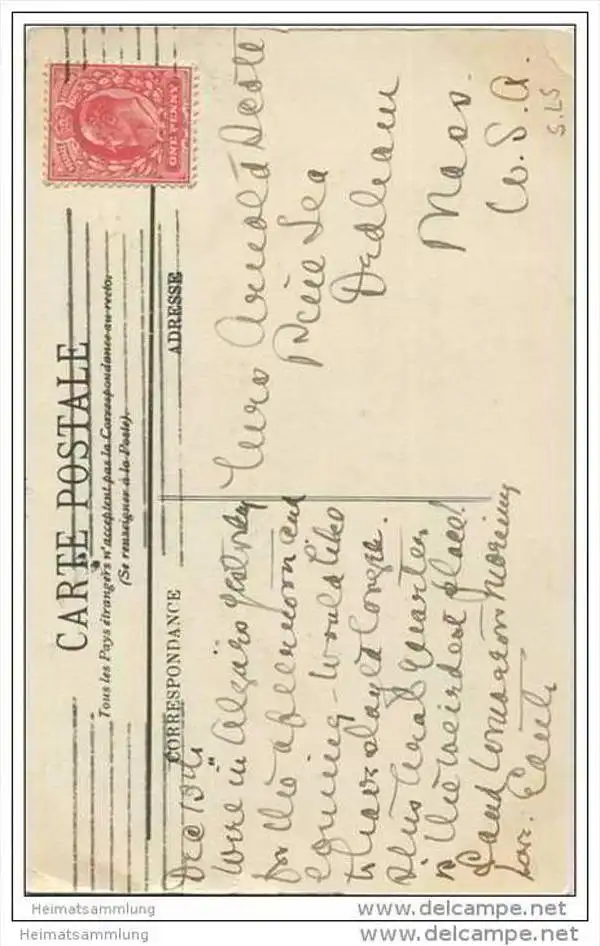 CARTE POSTALE
Tous les Pays étrangers n'acceptent pas la Correspondance au recto.
(Se renseigner à la Poste).
CORRESPONDANCE
ADRESSE
ONE PENNY
Dec 13th
Were in Algiers yesterday
for the afternoon and
evening - would like
to have stayed longer.
This Arab quarter
is the weirdest place!
Land tomorrow morning
Love. Edith
Mrs Arnold Scott
Pine Lea
Dedham
Mass.
U.S.A.
S.LS
Heimatsammlung
www.delcampe.net
Heimatsammlung
www.delcampe.net